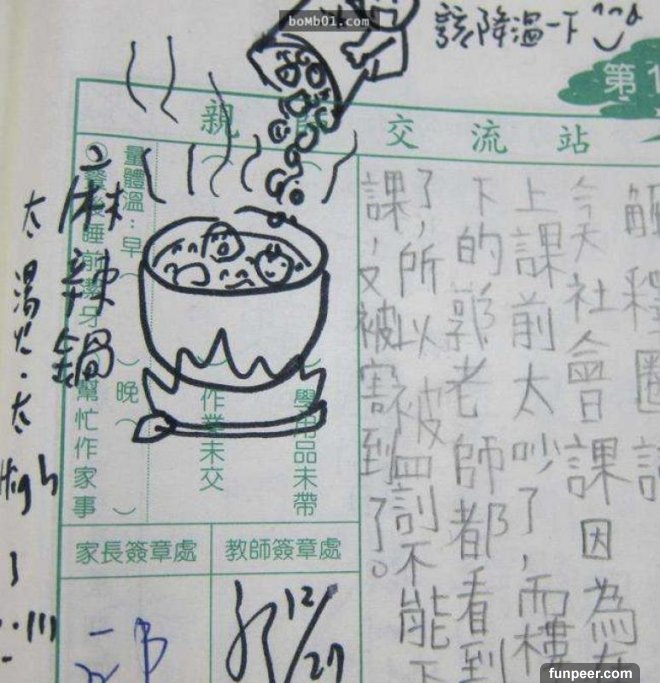 bomb01.com
該降溫一下 ^^
第1
親師交流站
今天社會課因為在
上課前太吵了，而樓
下的郭老師都看到
了，所以被罰不能下
課，又被害到了。
學用品未帶（
作業未交（
量體溫：早（ ）晚（ ）
睡前潔牙
幫忙作家事（ ）
麻辣鍋
太
太
High
家長簽章處
教師簽章處
12/27
funpeer.com